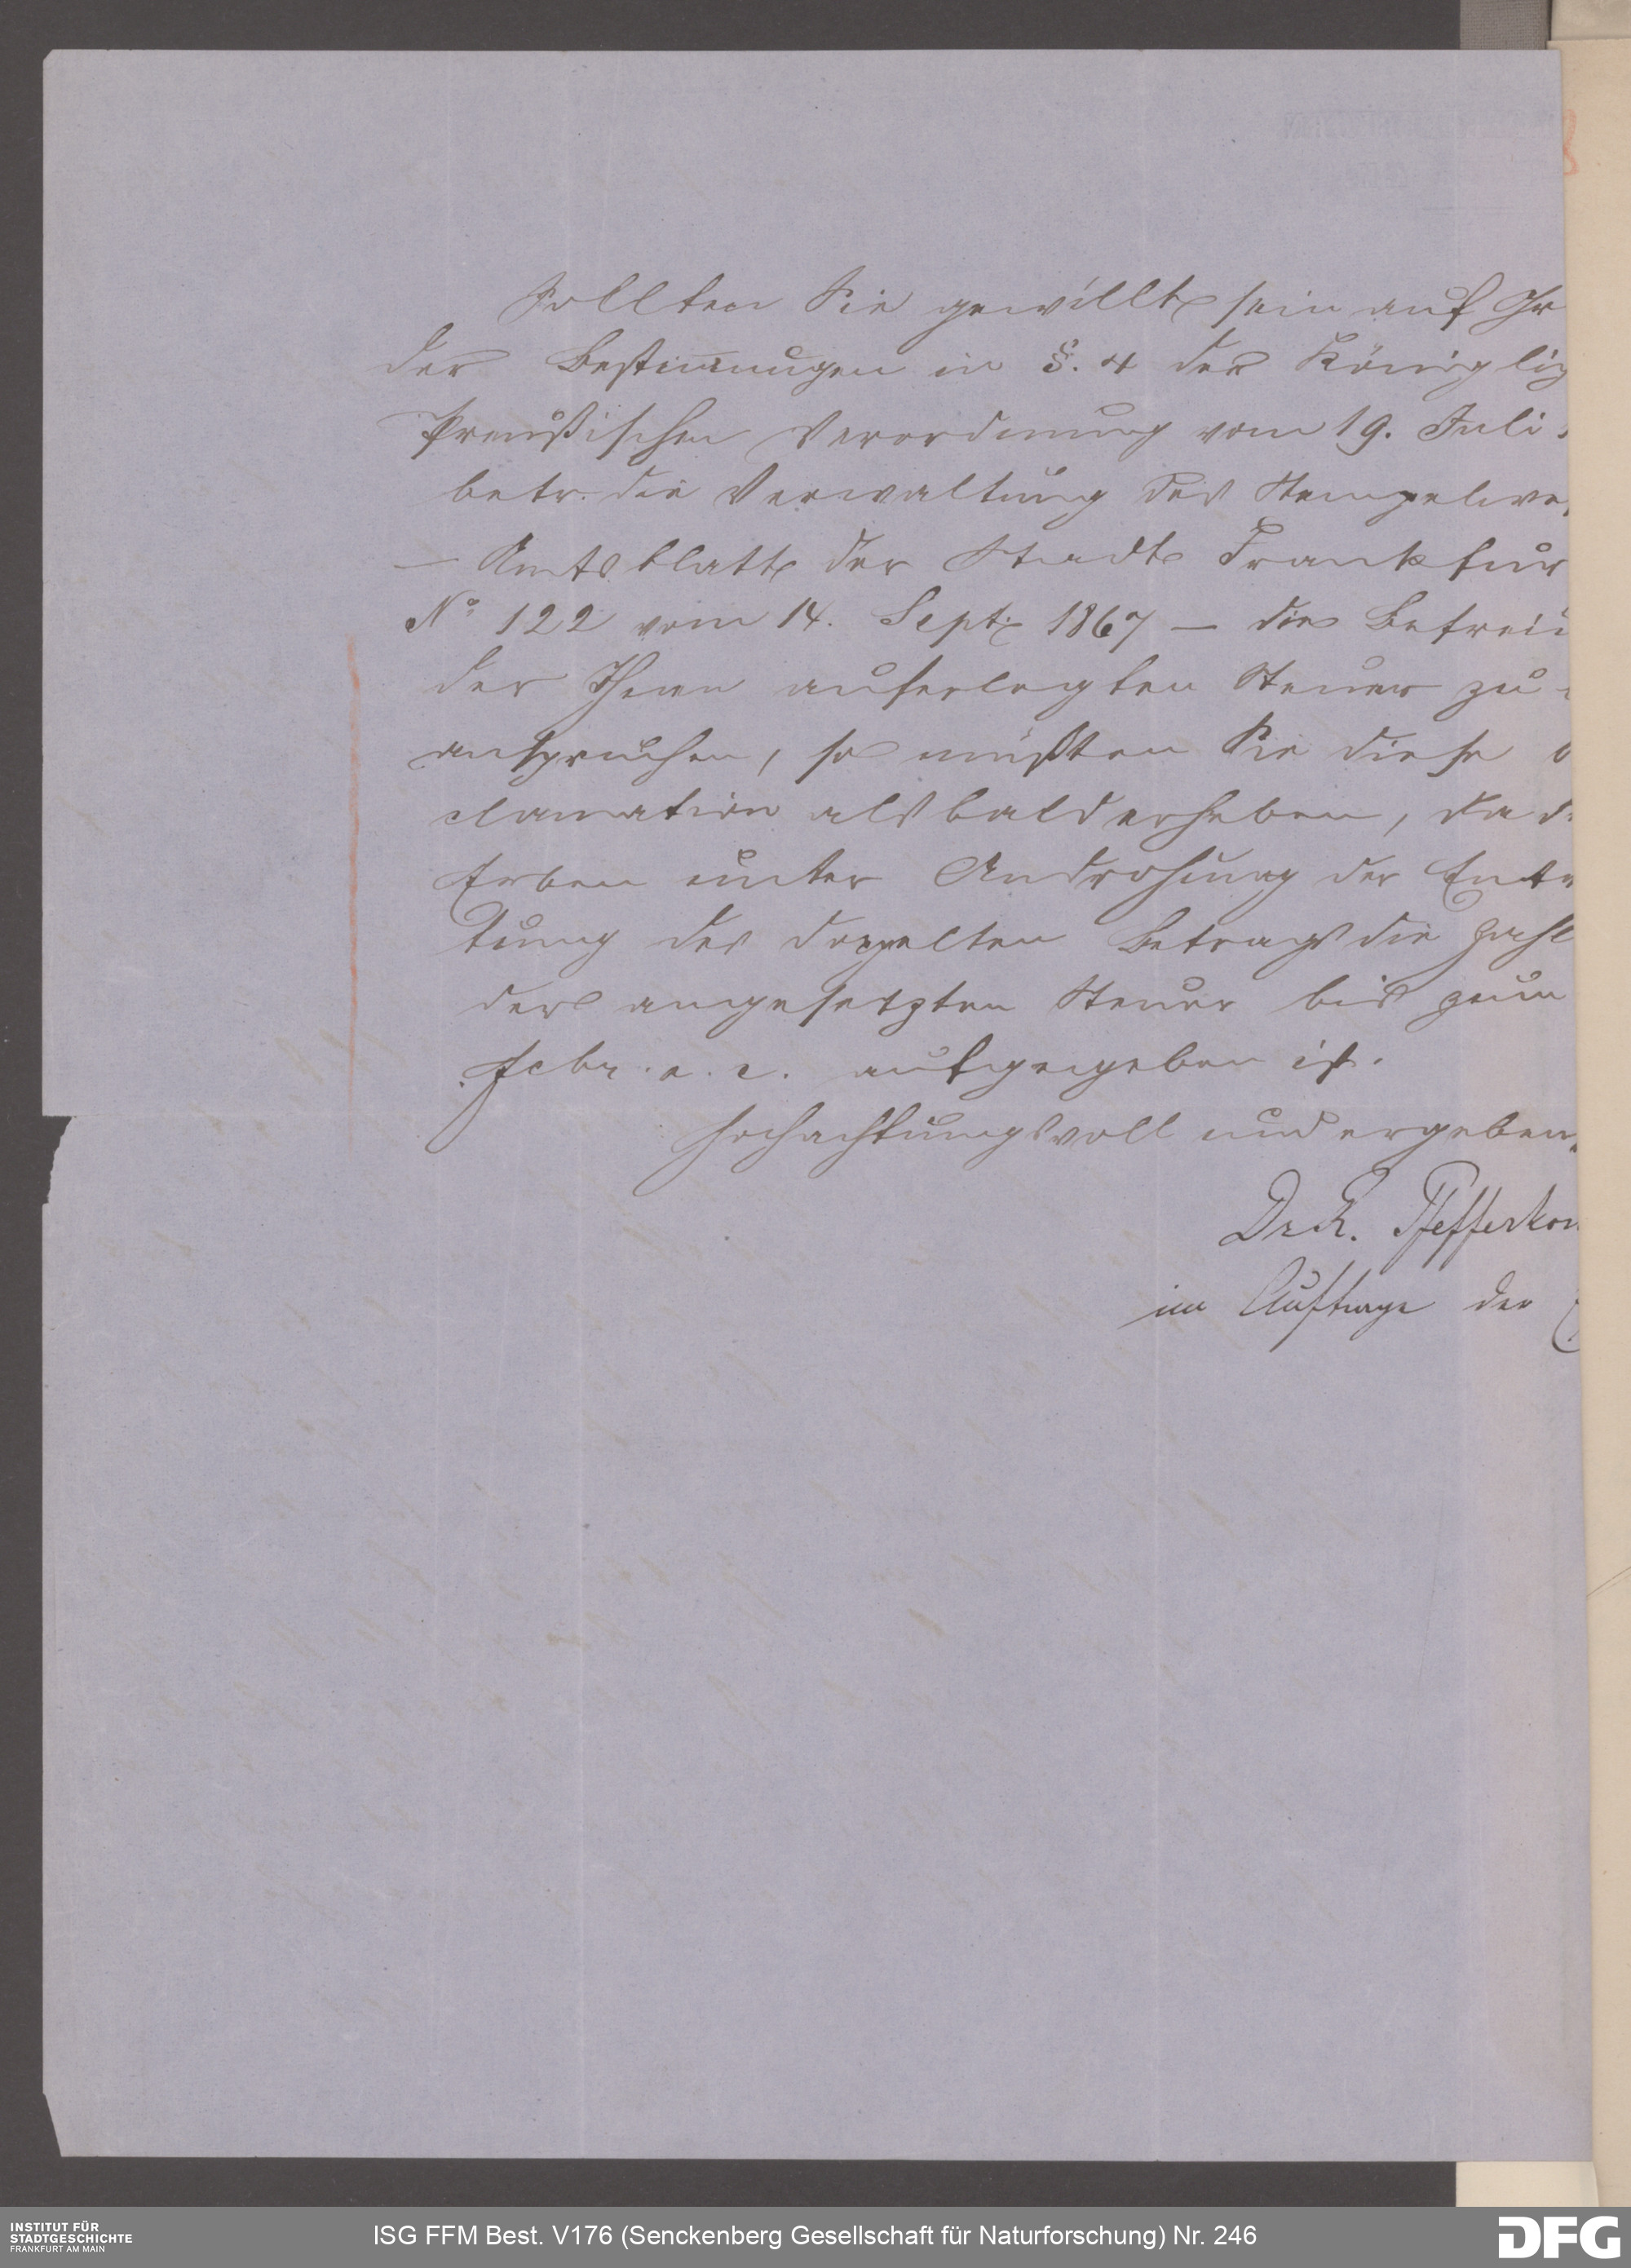 Sollten Sie gewillt sein auf Gr
der Bestimmungen in §. 4 der Königlich
Preußischen Verordnung vom 19. Juli
betr. die Verwaltung des Stempelwes
— Amtsblatt der Stadt Frankfur
No 122 vom 14. Sept. 1867 — die Befreiu
der Ihnen auferlegten Steuer zu
anspruchen, so müßten Sie diese
clamation alsbald erheben, da d
Erben unter Androhung der Entr
tung des doppelten Betrags die Zahl
der angesetzten Steuer bis zum
Febr. a. c. aufgegeben ist.
Hochachtungsvoll und ergeben
Dr. R. Pfefferkor
im Auftrage der
INSTITUT FÜR
STADTGESCHICHTE
FRANKFURT AM MAIN
ISG FFM Best. V176 (Senckenberg Gesellschaft für Naturforschung) Nr. 246
DFG